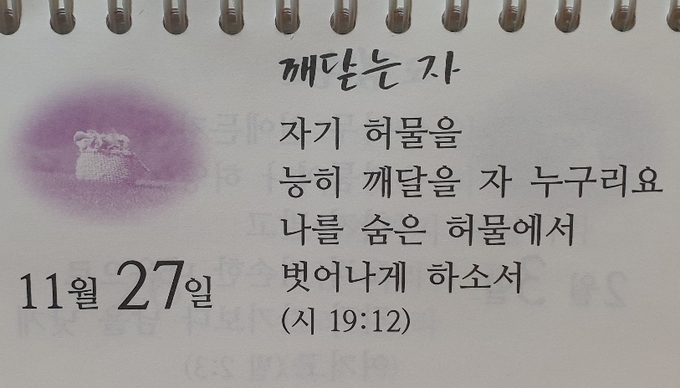 깨닫는 자
자기 허물을
능히 깨달을 자 누구리요
나를 숨은 허물에서
벗어나게 하소서
(시 19:12)
11월 27일